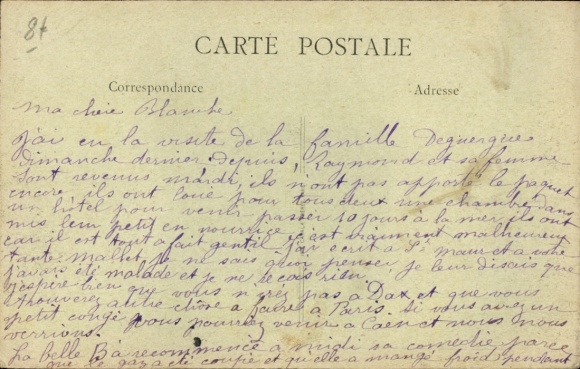 84
CARTE POSTALE
Correspondance Adresse
Ma chère Blanche
J'ai eu la visite de la famille Deguergue
Dimanche dernier depuis, Raymond et sa femme
sont revenus mardi, ils n'ont pas apporté le paquet
encore, ils ont loué pour tous deux une chambre dans
un hôtel pour venir passer 10 jours à la mer, ils ont
mis leur petit en nourrice, c'est vraiment malheureux
car il est tout a fait gentil. J'ai ecrit a St Maur et a votre
tante je ne sais quoi penser, je leur disais que
j'avais été malade et je ne reçois rien
J'espère bien que vous n'irez pas à Dax et que vous
trouverez autre chose a faire a Paris. Si vous avez un
petit congé vous pourrez venir a Caen et nous nous
verrions.
La belle B a recommencé a midi sa comedie parce
que le gaz a été coupé et qu'elle a mangé froid pendant